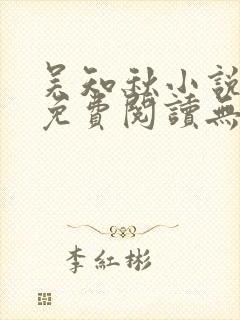 吴知秋小說
免費閱讀無
李紅彬